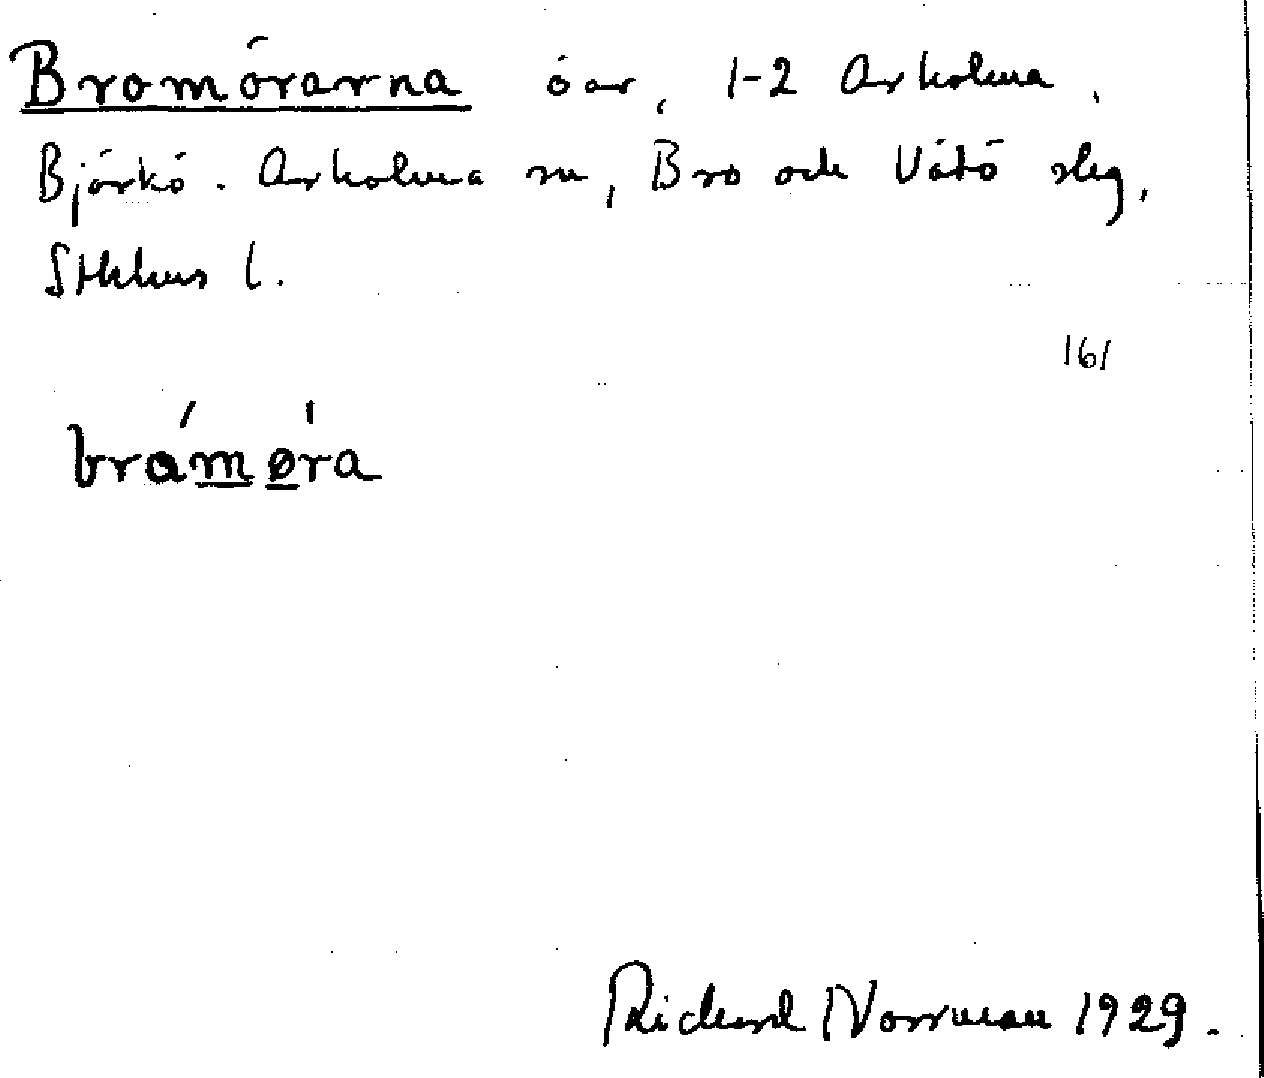 Bromörarna öar, 1-2 Arholma,
Björkö-Arholma sn, Bro och Vätö slg,
Sthlms l.
161
brámø̱ra
Richard Norrman 1929.